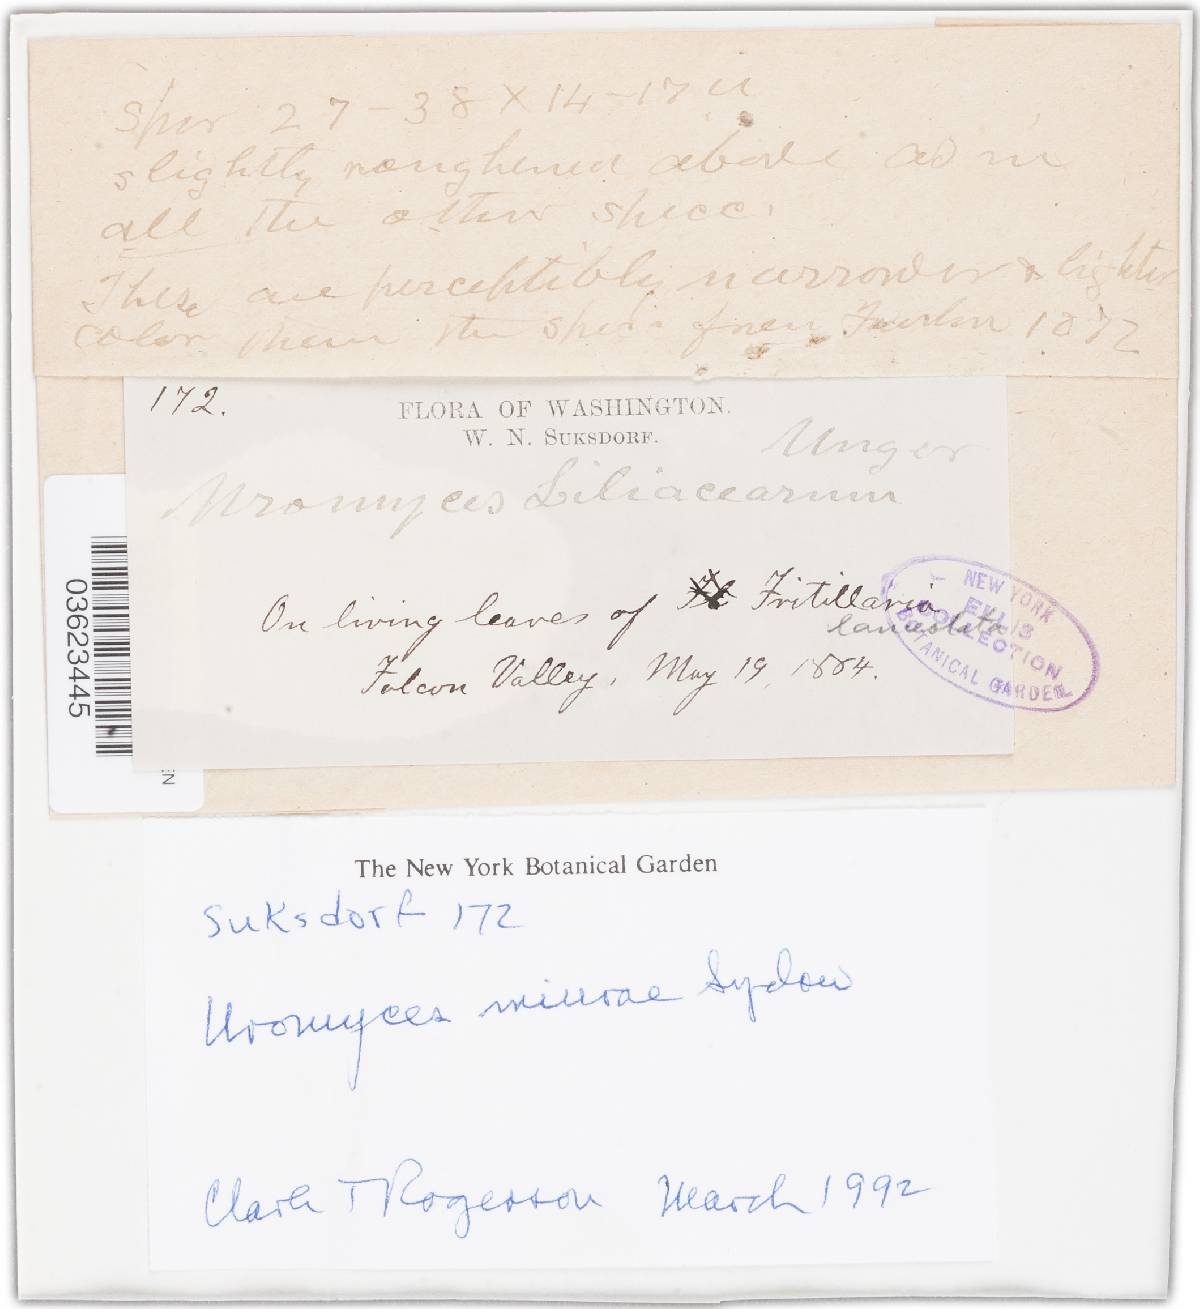 Spor 27-38 X 14-17 u
slightly roughened above as in
all the other spec.
These are perceptibly narrower & lighter
color than the spec. from 1872
172.
FLORA OF WASHINGTON.
W. N. SUKSDORF.
Unger
Uromyces Liliacearum
On living leaves of Fritillaria
lanceolata
Falcon Valley, May 19, 1884.
NEW YORK
ELLIS
COLLECTION
BOTANICAL GARDEN
03623445
EN
The New York Botanical Garden
Suksdorf 172
Uromyces miurae Sydow
Clark T Rogerson March 1992